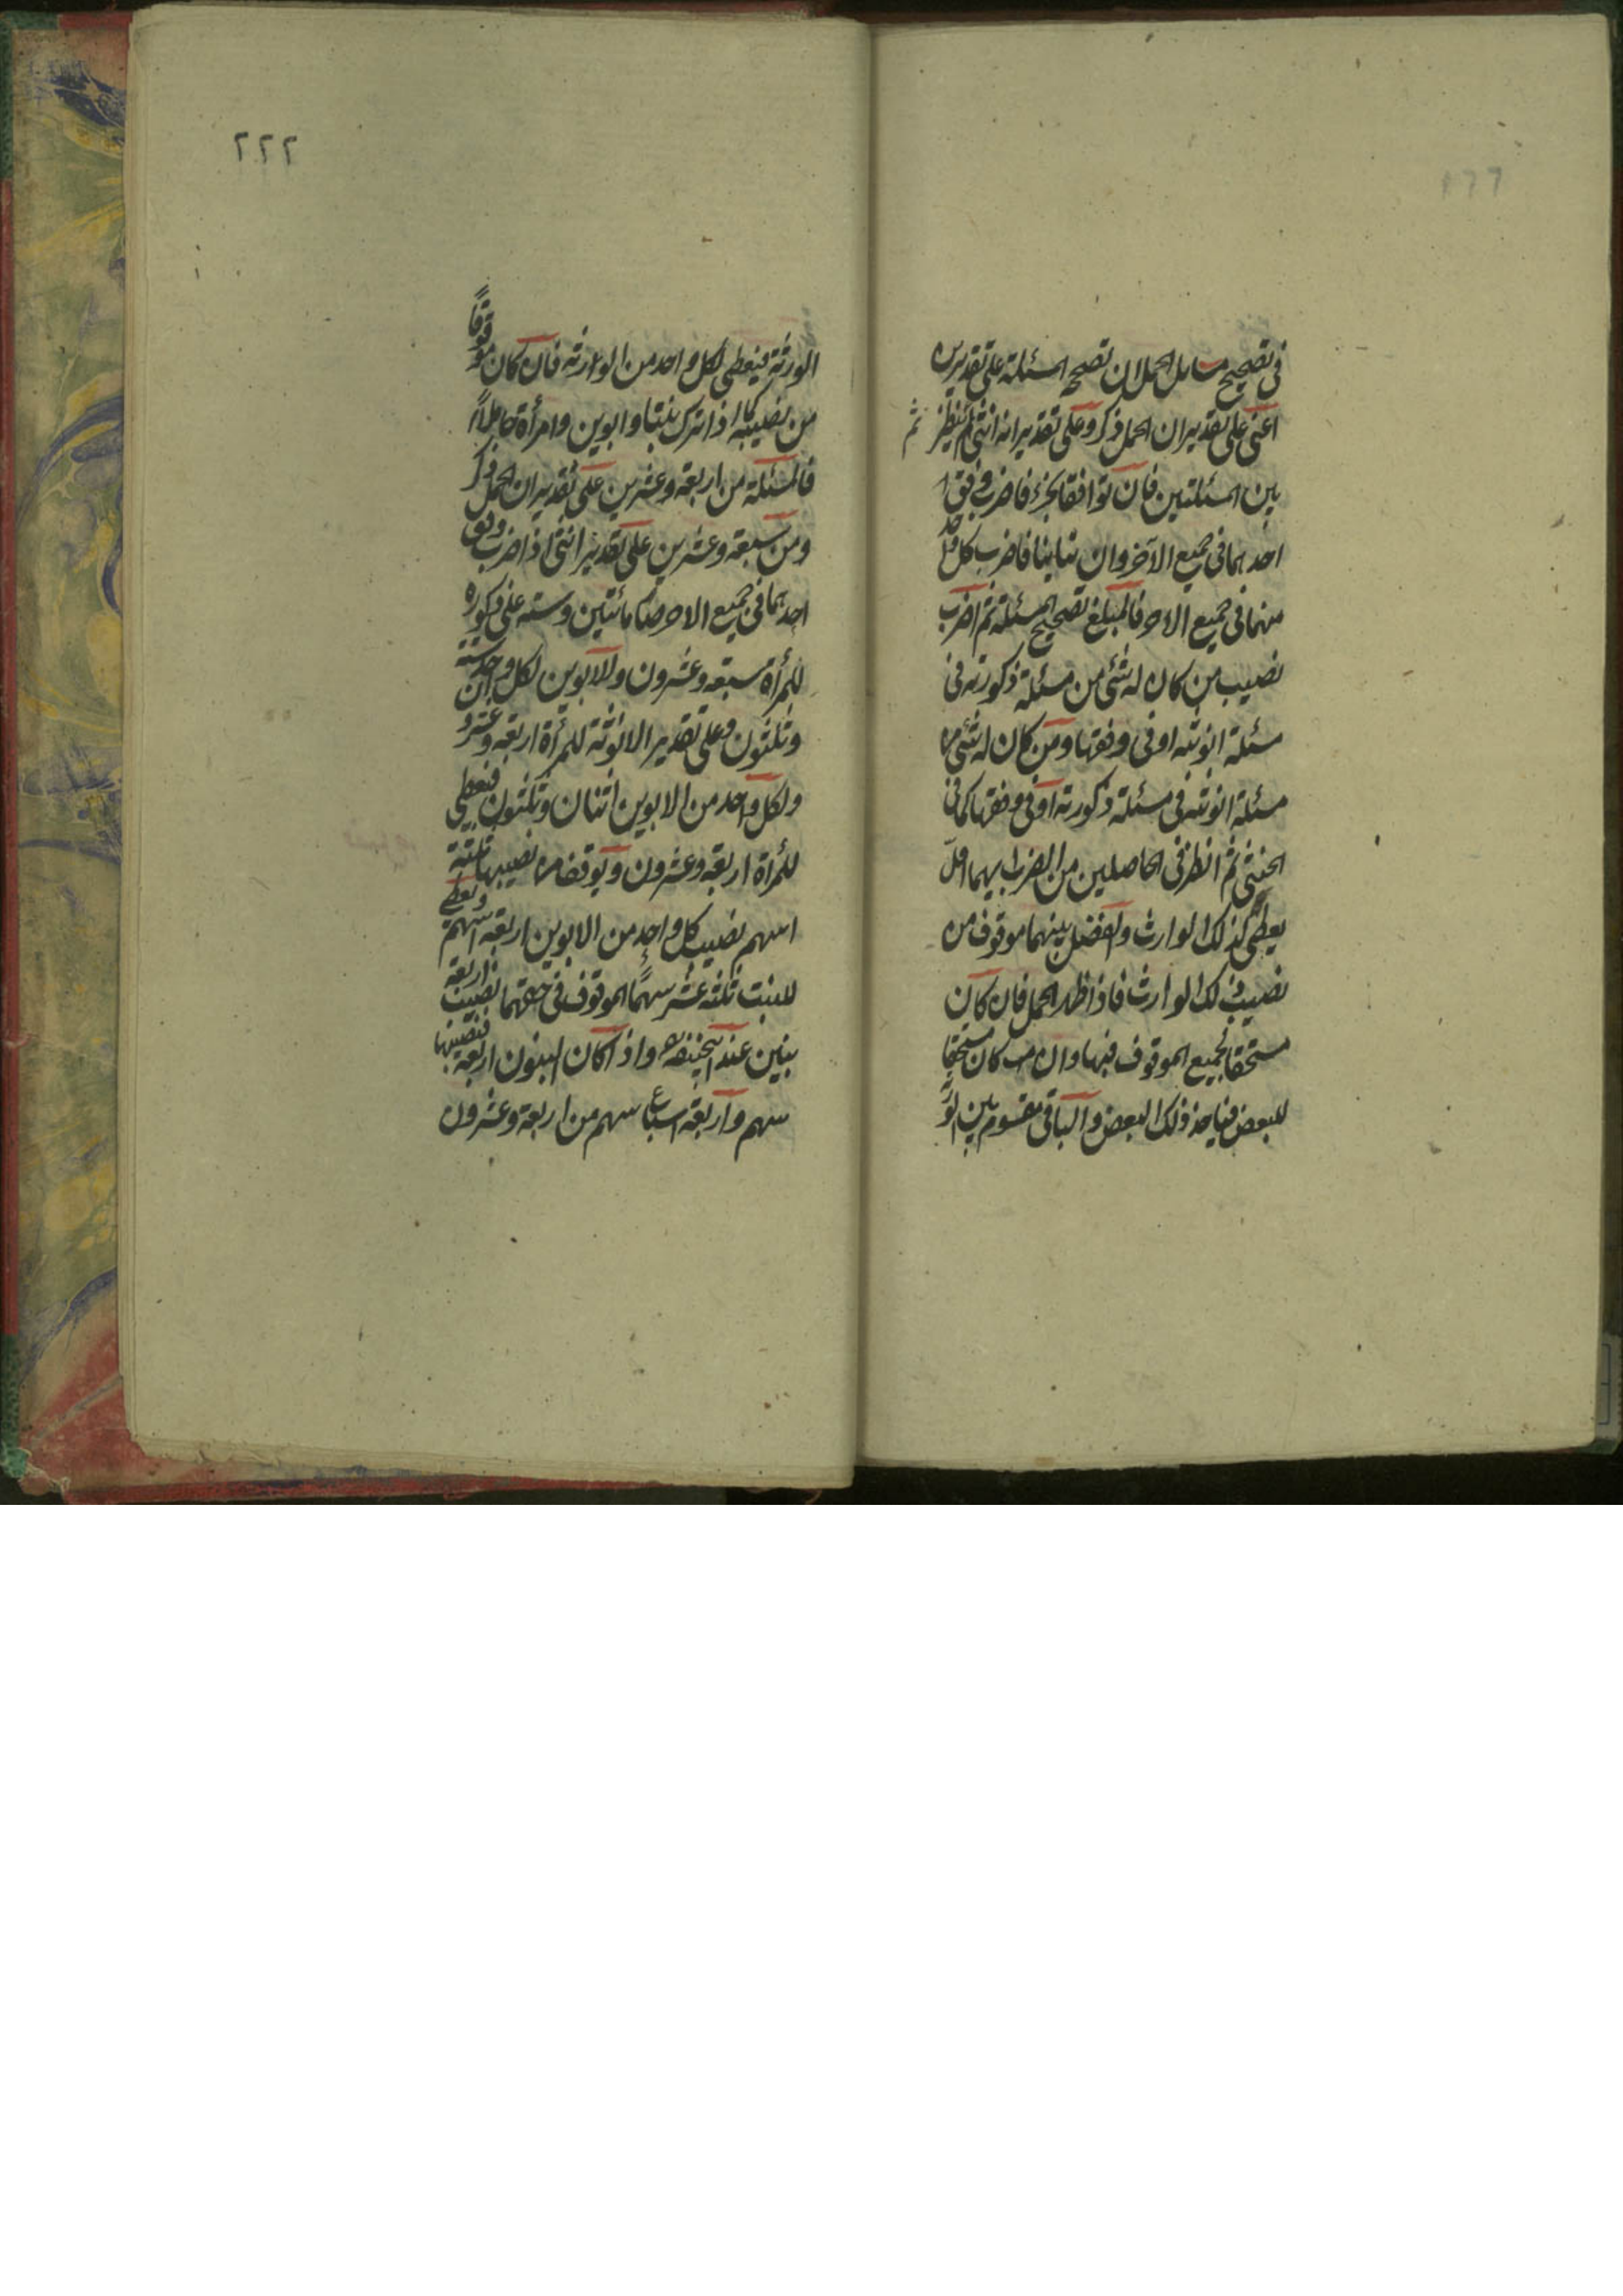 في تصحيح مسايل الحمل ان تصحح المسئلة على تقديرين
اعني على تقدير ان الحمل ذكر وعلى تقدير انه انثى ثم ينظر
ثم
بين المسئلتين فان توافقا بجزء فاضرب وفق
احدهما في جميع الآخر وان تباينا فاضرب كل واحد
منهما في جميع الاخر فالمبلغ تصحيح المسئلة ثم اضرب
نصيب من كان له شئ من مسئلة ذكورته في
مسئلة انوثته او في وفقها ومن كان له شئ من
مسئلة انوثته في مسئلة ذكورته او في وفقها كما في
الخنثى ثم انظر في الحاصلين من الضرب ايهما اقلّ
يعطى لذلك الوارث والفضل بينهما موقوف من
نصيب ذلك الوارث فاذا ظهر الحمل فان كان
مستحقا لجميع الموقوف فبها وان كان مستحقا
للبعض فياخذ ذلك البعض والباقي مقسوم بين الورثة
٢٢٢
الورثة فيعطى لكل واحد من الوارثة فان كان موقوفاً
من نصيبه كما اذا ترك بنتا وابوين وامرأة حاملاً
فالمسئلة من اربعة وعشرين على تقدير ان الحمل ذكر
ومن سبعة وعشرين على تقدير انثى اذا ضرب وفق
احدهما في جميع الاخر صار مائتين وستة على ذكوره
للمرأة سبعة وعشرون والابوين لكل واحد ستة
وثلثون وعلى تقدير الانوثة للمرأة اربعة وعشرون
ولكل واحد من الابوين اثنان وثلثون فيعطى
للمرأة اربعة وعشرون ويوقف من نصيبها ثلثة
اسهم نصيب كل واحد من الابوين اربعة اسهم ويعطى
للبنت ثلثة عشر سهمًا الموقوف في حقهما نصيب اربعة
بنين عند ابيحنيفة واذا كان البنون اربعة فنصيبها
سهم واربعة اسباع سهم من اربعة وعشرون